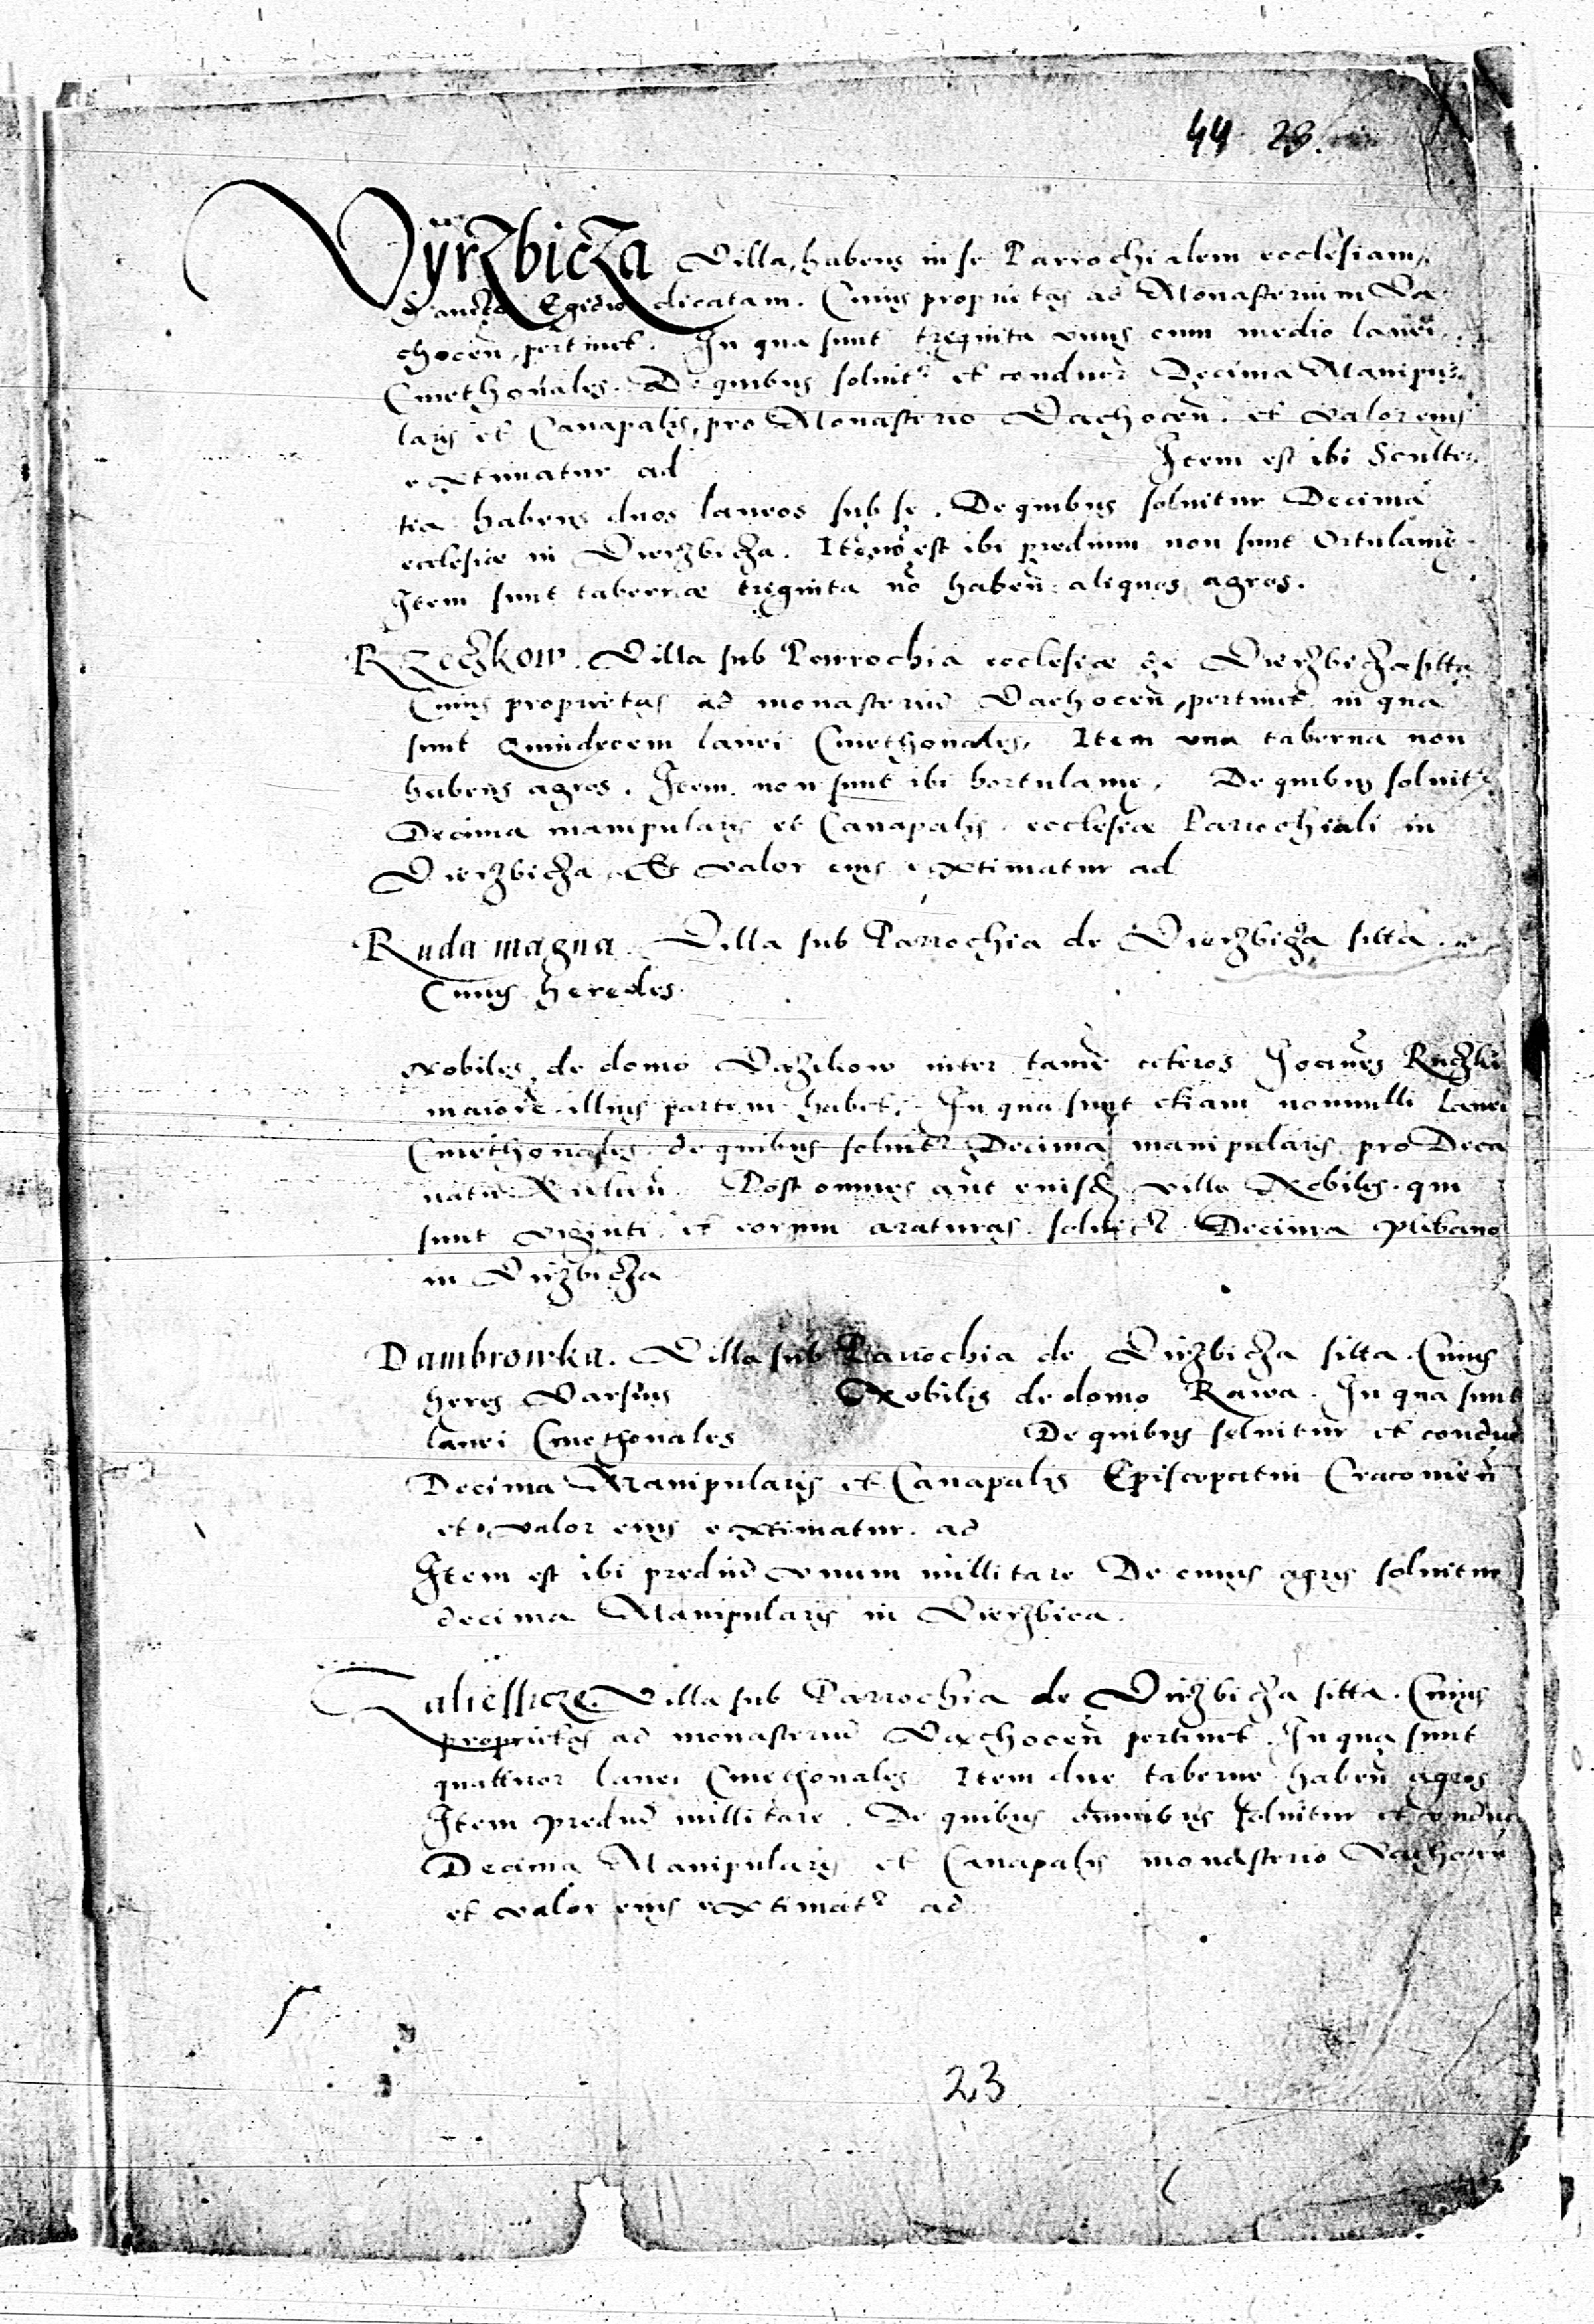 44 23.
Vyrzbicza Villa, habens in se Parrochialem ecclesiam
Sancto Egidio dicatam. Cuius proprietas ad Monasterium Va
chocen̄, pertinet. In qua sunt triginta unus cum medio lanei
Cmethonales. De quibus soluitʳ et conducʳ Decima Manipu
laris et Canapalis, pro Monasterio Vachocen̄. et valor eius
extimatur ad Item est ibi Sculte
tia habens duos laneos sub se. De quibus soluitur Decima
ecclesiæ in Vierzbicza. Item est ibi predium non sunt Ortulanie
Item sunt tabernæ triginta nō haben̄ aliquos agros.
Rzeczkow. Villa sub Parrochia ecclesiæ de Vierzbicza sitta
Cuius proprietas ad monasteriū Vachocen̄, pertinet. in qua
sunt Quindecem lanei Cmethonales, Item una taberna non
habens agros. Item non sunt ibi hortulanie. De quibus soluitʳ
Decima manipularis et Canapalis. ecclesiæ Parrochiali in
Vierzbicza. Et valor eius extimatur ad
Ruda magna. Villa sub Parrochia de Vierzbicza sitta.
Cuius heredes.
Nobiles, de domo inter tamē ceteros Joannes
maiorē illius partem habet. In qua sunt etiam nonnulli lanei
Cmethonales de quibus soluitʳ Decima manipularis pro Deca
natu Post omnes aūt eiusdē ville Nobiles. qui
sunt viginti. et eorum araturas. soluitʳ Decima plebano
in Virzbicza
Dambrowka. Villa sub Parrochia de Virzbicza sitta. Cuius
heres Varsius Nobilis de domo Rawa. In qua sunt
lanei Cmethonales De quibus soluitur et conduc
Decima Manipularis et Canapalis Episcopatui Cracouien̄
et valor eius extimatur. ad
Item est ibi prediū unum millitare De cuius agris soluitur
decima Manipularis in Vierzbica.
Zaliessicze. Villa sub Parrochia de Virzbicza sitta. Cuius
proprietas ad monasteriū Vachocen̄ pertinet. In qua sunt
quattuor lanei Cmethonales Item due taberne haben̄ agros
Item prediū millitare. De quibus omnibus soluitur et conduc
Decima Manipularis et Canapalis monasterio Vachocen̄
et valor eius extimatʳ ad
23